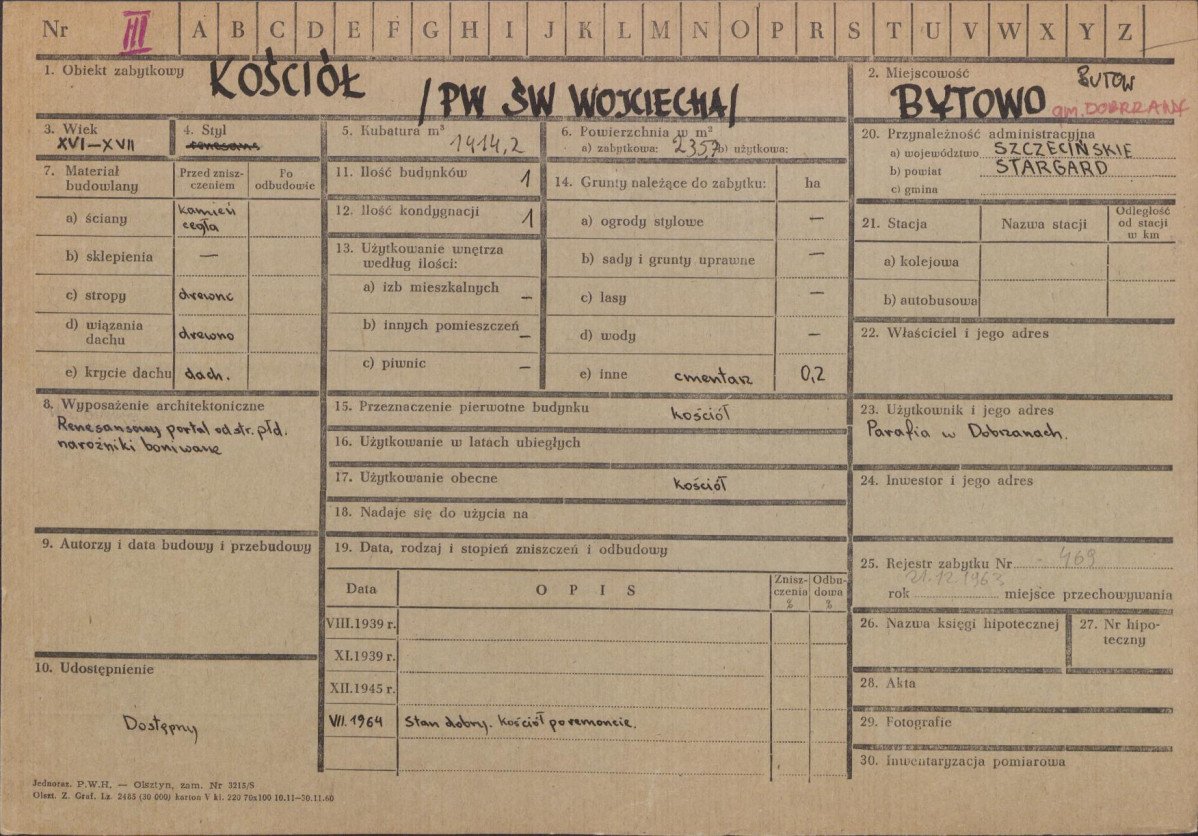 Nr III A B C D E F G H I J K L M N O P R S T U V W X Y Z
1. Obiekt zabytkowy KOŚCIÓŁ /PW ŚW WOJCIECHA/
2. Miejscowość BUTOW
BYTOWO gm. DOBRZANY
3. Wiek
XVI—XVII
4. Styl
renesans
5. Kubatura m³ 1414,2
6. Powierzchnia w m²
a) zabytkowa: 235,7 b) użytkowa:
7. Materiał budowlany
Przed zniszczeniem
Po odbudowie
a) ściany kamień cegła
b) sklepienia —
c) stropy drewno
d) wiązania dachu drewno
e) krycie dachu dach.
8. Wyposażenie architektoniczne
Renesansowy portal od str. płd.
narożniki boniwane
9. Autorzy i data budowy i przebudowy
10. Udostępnienie
Dostępny
11. Ilość budynków 1
12. Ilość kondygnacji 1
13. Użytkowanie wnętrza
według ilości:
a) izb mieszkalnych —
b) innych pomieszczeń —
c) piwnic —
14. Grunty należące do zabytku: ha
a) ogrody stylowe —
b) sady i grunty uprawne —
c) lasy —
d) wody —
e) inne cmentarz 0,2
15. Przeznaczenie pierwotne budynku kościół
16. Użytkowanie w latach ubiegłych
17. Użytkowanie obecne kościół
18. Nadaje się do użycia na
19. Data, rodzaj i stopień zniszczeń i odbudowy
Data OPIS Zniszczenia % Odbudowa %
VIII.1939 r.
XI.1939 r.
XII.1945 r.
VII. 1964 Stan dobry. Kościół po remoncie.
20. Przynależność administracyjna
a) województwo SZCZECIŃSKIE
b) powiat STARGARD
c) gmina
21. Stacja Nazwa stacji Odległość od stacji w km
a) kolejowa
b) autobusowa
22. Właściciel i jego adres
23. Użytkownik i jego adres
Parafia w Dobrzanach.
24. Inwestor i jego adres
25. Rejestr zabytku Nr 469
21.12.1963
rok miejsce przechowywania
26. Nazwa księgi hipotecznej
27. Nr hipoteczny
28. Akta
29. Fotografie
30. Inwentaryzacja pomiarowa
Jednoraz. P.W.H. — Olsztyn, zam. Nr 3215/S
Olszt. Z. Graf. Lz. 2485 (30 000) karton V kl. 220 70x100 10.11—30.11.60